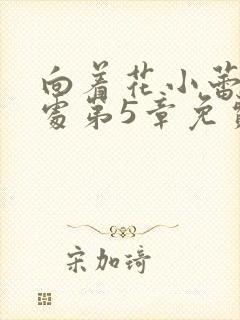 向着花小蕾
处第5章免费
宋加琦